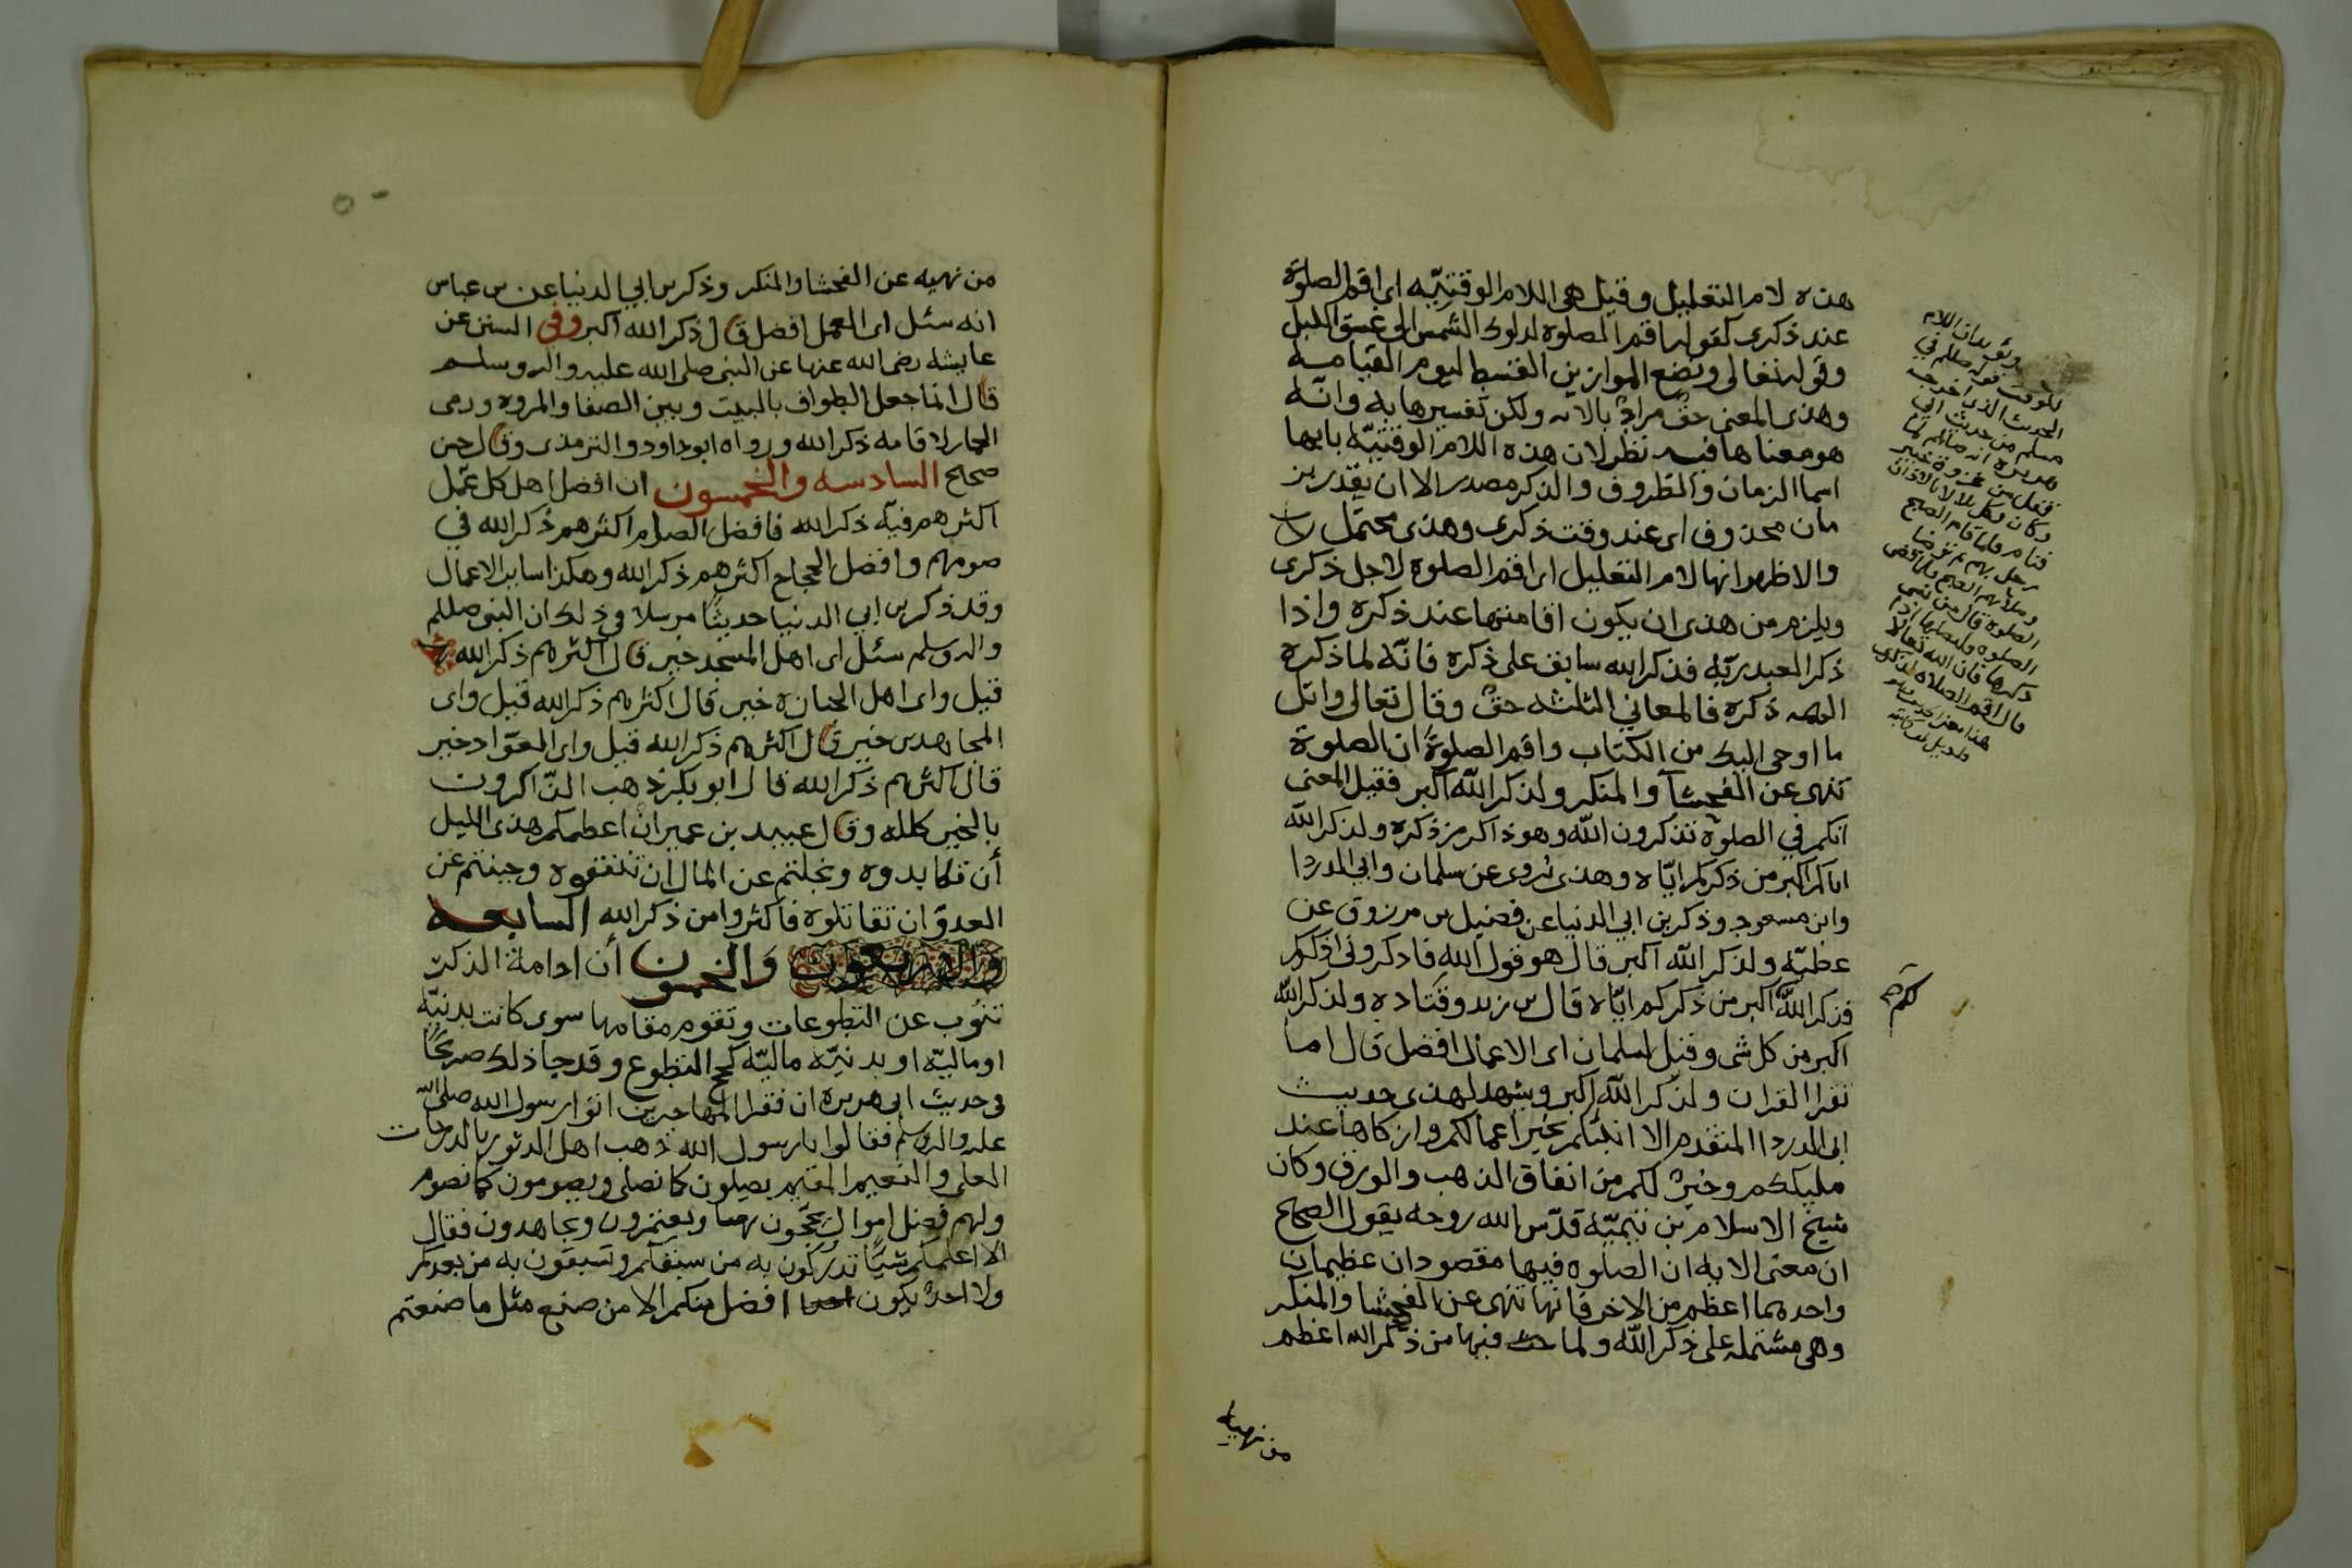 هذه لام التعليل وقيل هي اللام الوقتيّه اي اقم الصلوة
عند ذكري كقوله اقم الصلوة لدلوك الشمس الى غسق الليل
وقوله تعالى ونضع الموازين القسط ليوم القيامه
وهذى المعنى حقٌ مرادٌ بالايه ولكن تفسيرها به وانّه
هو معناها فيه نظر لان هذه اللام الوقتيّه بابها
اسما الزمان والظروف والذكر مصدر الا ان يقدر بز
مان محذوف اى عند وقت ذكرى وهذى محتمل
والاظهر انها لام التعليل اى اقم الصلوة لاجل ذكرى
ويلزم من هذى ان يكون اقامتها عند ذكره واذا
ذكر العبد ربّه فذكر الله سابق على ذكره فانّه لما ذكره
الهمه ذكره فالمعاني الثلثه حقٌ وقال تعالى واتل
ما اوحى اليك من الكتاب واقم الصلوة ان الصلوة
تنهى عن الفحشآ والمنكر ولذكر الله اكبر فقيل المعنى
انكم في الصلوة تذكرون الله وهو ذاكر من ذكره ولذكر الله
اياكم اكبر من ذكركم ايّاه وهذى يُروى عن سلمان وابي الدردا
وابن مسعود وذكر بن ابي الدنيا عن فضيل بن مرزوق عن
عطيّه ولذكر الله اكبر قال هو قول الله فاذكروني اذكركم
فذكر الله اكبر من ذكركم ايّاه قال بن زيد وقتاده ولذكر الله
لكم صح
اكبر من كل شي وقيل لسلمان اى الاعمال افضل قال اما
تقرا القران ولذكر الله اكبر ويشهد لهذى حديث
ابى الدردا المتقدم الا انبئكم بخير اعمالكم وازكاها عند
مليككم وخيرٌ لكم من انفاق الذهب والورق وكان
شيخ الاسلام بن تيميّه قدّس الله روحه يقول الصحاح
ان معنى الايه ان الصلوه فيها مقصودان عظيمان
واحدهما اعظم من الاخر فانها تنهى عن الفحشا والمنكر
وهي مشتمله على ذكر الله ولما فيها من ذكر الله اعظم
من نهيه
ويؤيد ان اللام
للوقت قوله صللم في
الحديث الذي اخرجه
مسلم من حديث ابي
هريره انه صللم لما
قفل من غزوة خيبر
وكان وكل بلالا بالاذان
فنام فلما قام الصبح
رحل بهم ثم توضا
وصلا بهم الصبح فلما قضى
الصلوه قال من نسى
الصلوه فليصلها اذا
ذكرها فان الله تعالا
قال اقم الصلاه لذكرى
من نهيه عن الفحشا والمنكر وذكر بن ابي الدنيا عن بن عباس
انه سئل اى العمل افضل قال ذكر الله اكبر وفي السنن عن
عايشه رضى الله عنها عن النبى صلى الله عليه واله وسلم
قال انما جعل الطواف بالبيت وبين الصفا والمروه ورمى
الجمار لاقامة ذكر الله ورواه ابو داود والترمذى وقال حسن
صحيح السادسه والخمسون ان افضل اهل كل عمل
اكثرهم فيه ذكر الله فافضل الصوام اكثرهم ذكر الله في
صومهم وافضل الحجاج اكثرهم ذكر الله وهكذا ساير الاعمال
وقد ذكر بن ابي الدنيا حديثًا مرسلا في ذلك ان النبى صللم
واله وسلم سئل اى اهل المسجد خير قال اكثرهم ذكر الله
قيل واى اهل الجنازه خير قال اكثرهم ذكر الله قيل واى
المجاهدين خير قال اكثرهم ذكر الله قيل واى العوّاد خير
قال اكثرهم ذكر الله قال ابو بكر ذهب الذّاكرون
بالخير كله وقال عبيد بن عمير ان اعظمكم هذى الليل
أن تكابدوه وبخلتم عن المال ان تنفقوه وجبنتم عن
العدوّ ان تقاتلوه فاكثروا من ذكر الله السابعه
والاربعون والخمسون أن ادامة الذكر
تنوب عن التطوعات وتقوم مقامها سوى كانت بدنيّه
او ماليّه او بدنيّه ماليّه كحج التطوع وقد جا ذلك صريحًا
فى حديث ابى هريره ان فقرا المهاجرين اتوا رسول الله صلى الله
عليه واله وسلم فقالوا يا رسول الله ذهب اهل الدثور بالدرجات
العلى والنعيم المقيم يصلون كما نصلي ويصومون كما نصوم
ولهم فضل اموال يحجّون بها ويعتمرون ويجاهدون فقال
الا اعلمكم شيًا تدركون به من سبقكم وتسبقون به من بعدكم
ولا احدٌ يكون افضل منكم الا من صنع مثل ما صنعتم